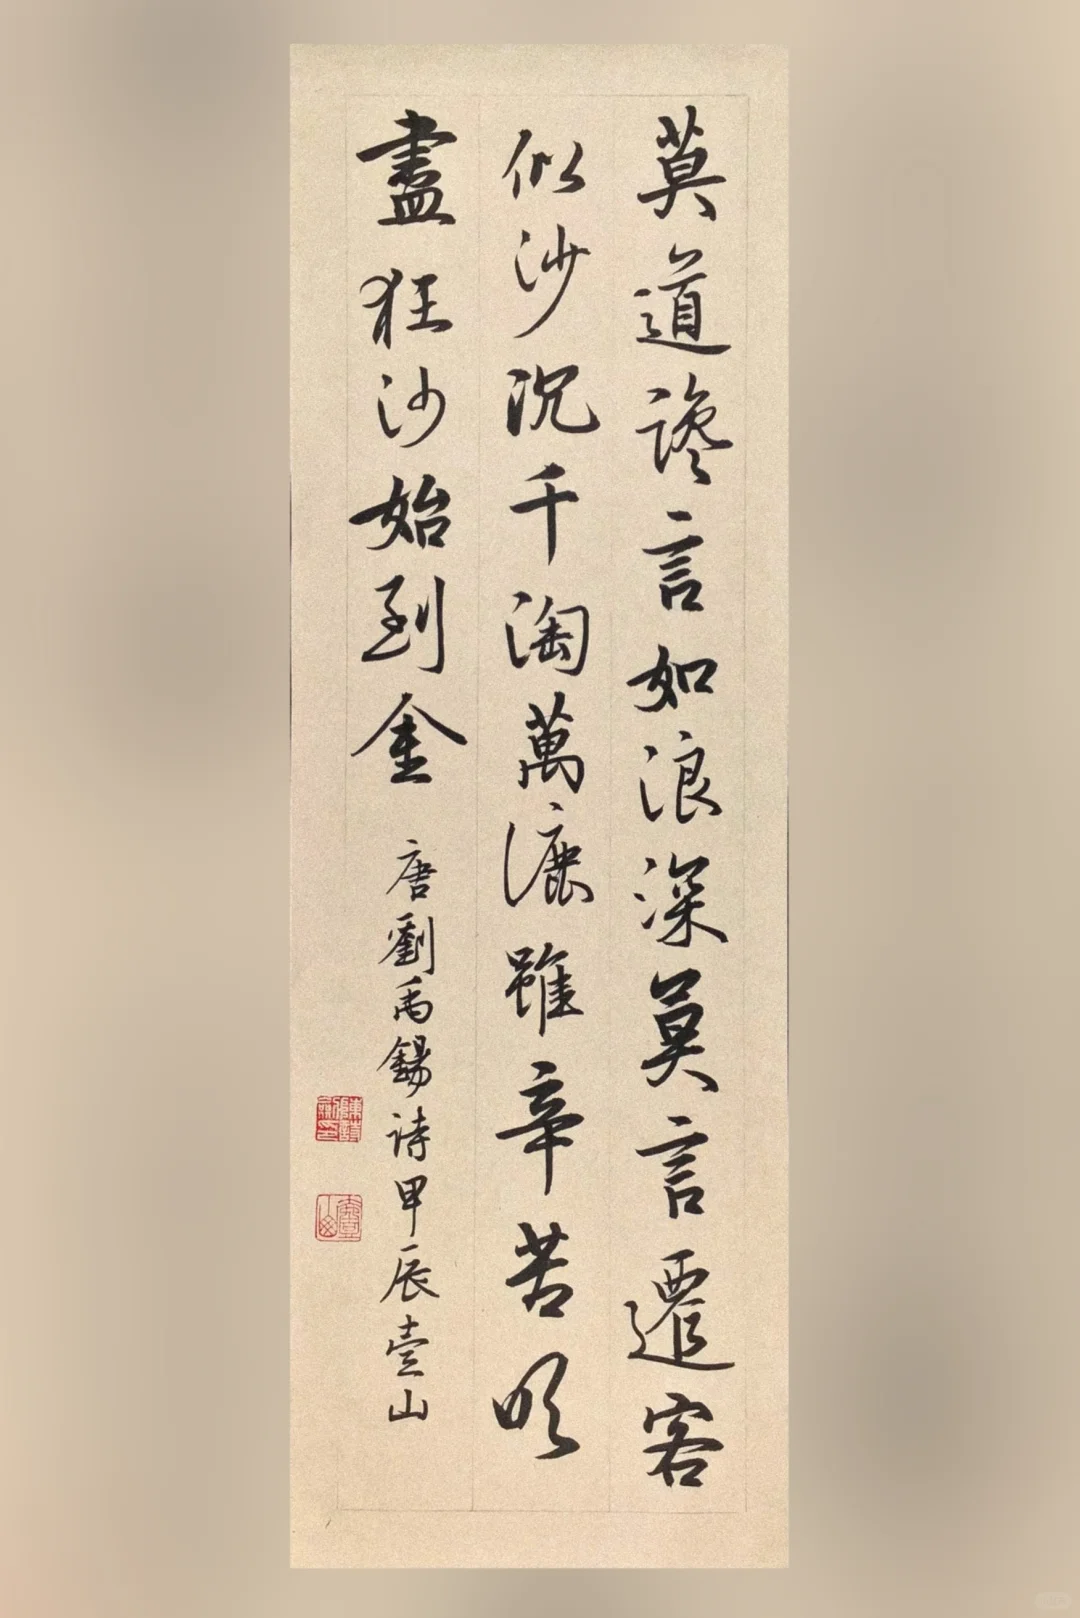 莫道讒言如浪深莫言遷客
似沙沉千淘萬漉雖辛苦吹
盡狂沙始到金
唐劉禹錫詩甲辰壹山